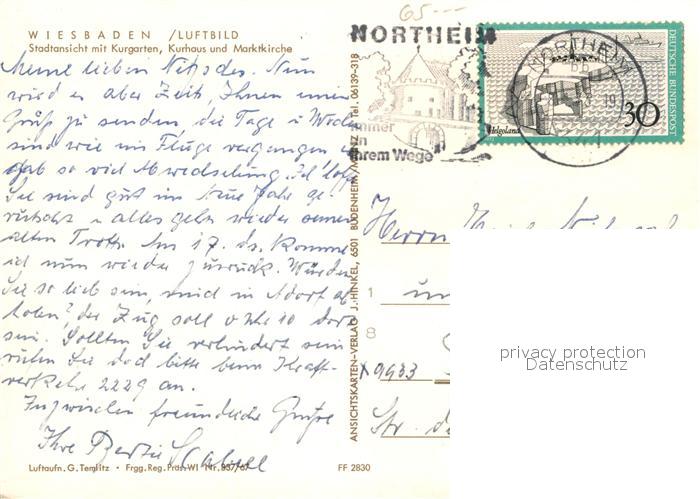 WIESBADEN /LUFTBILD
Stadtansicht mit Kurgarten, Kurhaus und Marktkirche
Meine lieben
wird es aber Zeit, Ihnen einen
Gruß zu senden, die Tage u Wochen
sind wie im Fluge vergangen,
gab so viel Abwechselung. Ich hoffe
Sie sind gut ins Neue Jahr ge-
rutscht u alles geht wieder seinen
alten Trott. Am 17. ds. komme
ich nun wieder zurück. Würden
Sie so lieb sein, mich in Adorf ab
holen? der Zug soll 0 Uhr 10 dort
sein. Sollten Sie verhindert sein
rufen Sie doch bitte beim Kraft-
verkehr 2229 an.
Inzwischen freundliche Grüße
Ihre
Luftaufn. G. Temlitz • Frgg. Reg. Präs. WI Nr. 837/67
FF 2830
ANSICHTSKARTEN-VERLAG J. HINKEL, 6501 BUDENHEIM/ Tel. 06139-318
65.--
NORTHEIM
immer
in
Ihrem Wege
NORTHEIM
19
1
DEUTSCHE BUNDESPOST
Helgoland
30
Herrn
1
8
X 9933
Str. d
privacy protection
Datenschutz